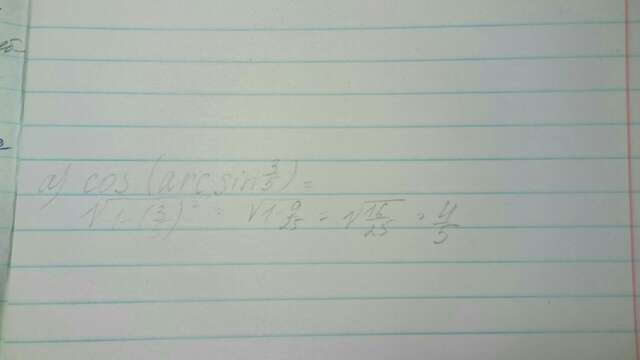 а) cos (arcsin 3/5) =
√1-(3/5)² = √1-9/25 = √16/25 = 4/5